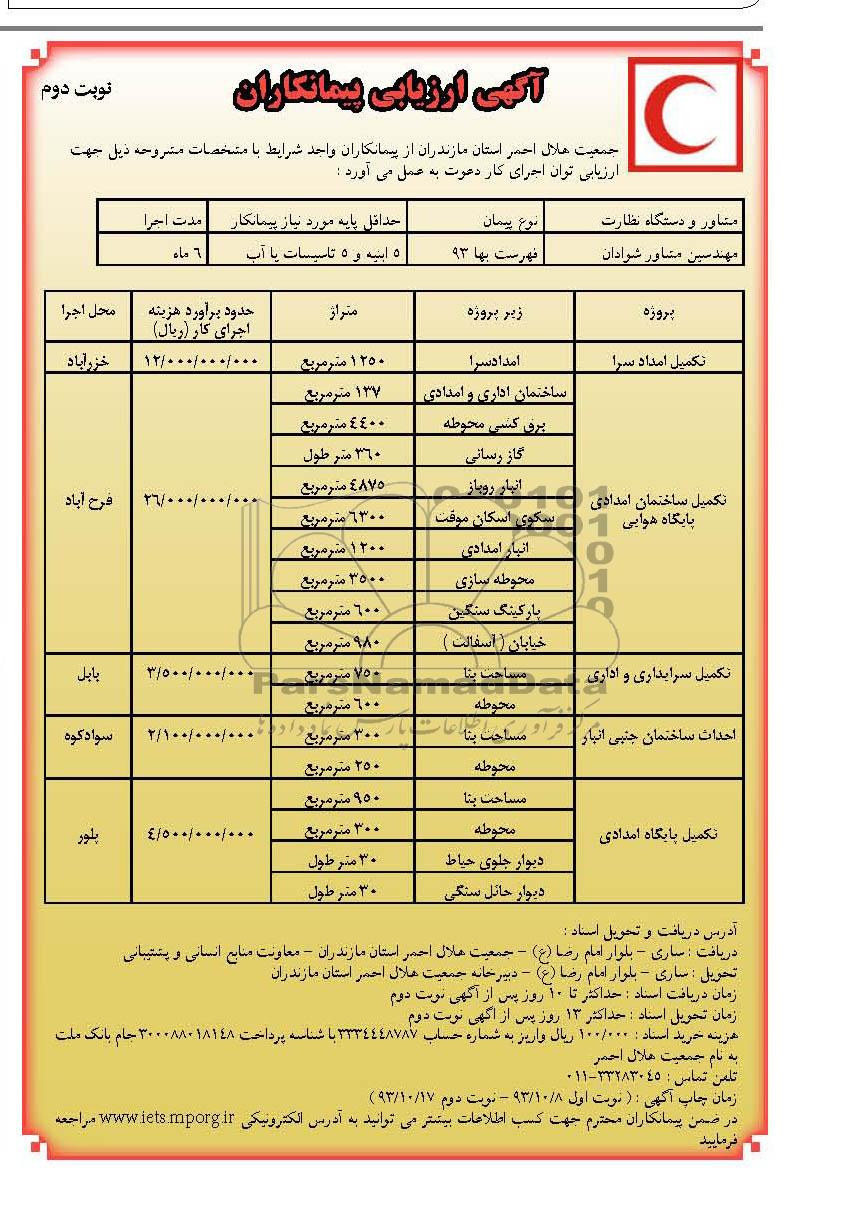 آگهی ارزیابی پیمانکاران
نوبت دوم
جمعیت هلال احمر استان مازندران از پیمانکاران واجد شرایط با مشخصات مشروحه ذیل جهت
ارزیابی توان اجرای کار دعوت به عمل می آورد :
مشاور و دستگاه نظارت نوع پیمان حداقل پایه مورد نیاز پیمانکار مدت اجرا
مهندسین مشاور شوادان فهرست بها ۹۳ ۵ ابنیه و ۵ تاسیسات یا آب ۶ ماه
پروژه زیر پروژه متراژ حدود برآورد هزینه محل اجرا
اجرای کار (ریال)
تکمیل امداد سرا امدادسرا ۱۲۵۰ مترمربع ۱۲/۰۰۰/۰۰۰/۰۰۰ خزرآباد
ساختمان اداری و امدادی ۱۳۷ مترمربع
برق کشی محوطه ۴۴۰۰ مترمربع
گاز رسانی ۳۶۰ متر طول
انبار روباز ۴۸۷۵ مترمربع
تکمیل ساختمان امدادی ۲۶/۰۰۰/۰۰۰/۰۰۰ فرح آباد
پایگاه هوایی سکوی اسکان موقت ۶۳۰۰ مترمربع
انبار امدادی ۱۲۰۰ مترمربع
محوطه سازی ۳۵۰۰ مترمربع
پارکینگ سنگین ۶۰۰ مترمربع
خیابان ( آسفالت ) ۹۸۰ مترمربع
تکمیل سرایداری و اداری مساحت بنا ۷۵۰ مترمربع ۳/۵۰۰/۰۰۰/۰۰۰ بابل
محوطه ۶۰۰ مترمربع
احداث ساختمان جنبی انبار مساحت بنا ۳۰۰ مترمربع ۲/۱۰۰/۰۰۰/۰۰۰ سوادکوه
محوطه ۲۵۰ مترمربع
مساحت بنا ۹۵۰ مترمربع
تکمیل پایگاه امدادی محوطه ۳۰۰ مترمربع ۴/۵۰۰/۰۰۰/۰۰۰ پلور
دیوار جلوی حیاط ۳۰ متر طول
دیوار حائل سنگی ۳۰ متر طول
ParsNamadData
مرکز فرآوری اطلاعات پارس نماد داده ها
آدرس دریافت و تحویل اسناد :
دریافت : ساری – بلوار امام رضا (ع) – جمعیت هلال احمر استان مازندران – معاونت منابع انسانی و پشتیبانی
تحویل : ساری – بلوار امام رضا (ع) – دبیرخانه جمعیت هلال احمر استان مازندران
زمان دریافت اسناد : حداکثر تا ۱۰ روز پس از آگهی نوبت دوم
زمان تحویل اسناد : حداکثر ۱۳ روز پس از اگهی نوبت دوم
هزینه خرید اسناد : ۱۰۰/۰۰۰ ریال واریز به شماره حساب ۳۳۳۴۴۴۸۷۸۷ با شناسه پرداخت ۳۰۰۰۸۸۰۱۸۱۴۸ جام بانک ملت
به نام جمعیت هلال احمر
تلفن تماس : ۳۳۲۸۳۰۴۵-۰۱۱
زمان چاپ آگهی : ( نوبت اول ۹۳/۱۰/۸ – نوبت دوم ۹۳/۱۰/۱۷ )
در ضمن پیمانکاران محترم جهت کسب اطلاعات بیشتر می توانید به آدرس الکترونیکی www.iets.mporg.ir مراجعه
فرمایید